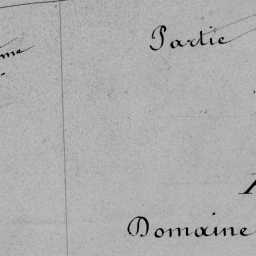 Partie
Domaine